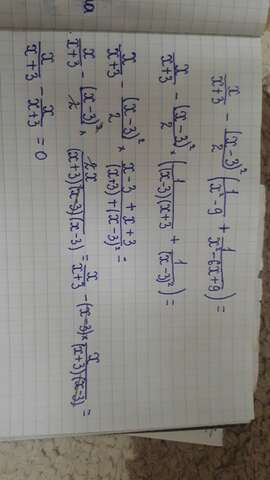 x/(x+3) - (x-3)²/2 (1/(x²-9) + 1/(x²-6x+9)) =
x/(x+3) - (x-3)²/2 × (1/((x-3)(x+3)) + 1/(x-3)²) =
x/(x+3) - (x-3)²/2 × (x-3+x+3)/((x+3)+(x-3)²) =
x/(x+3) - (x-3)²/2 × 2x/((x+3)(x-3)(x-3)) = x/(x+3) - (x-3) × x/((x+3)(x-3)) =
x/(x+3) - x/(x+3) = 0